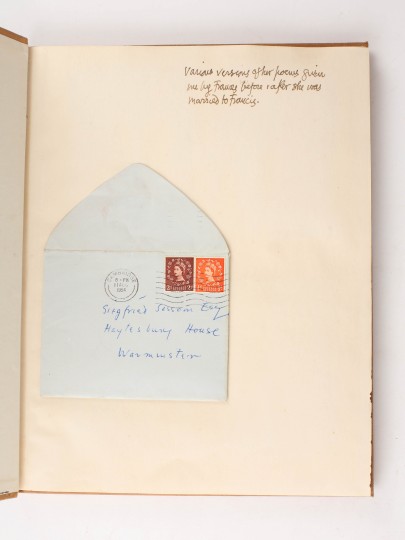 Various versions of her poems given
me by Frances before & after she was
married to Francis.
CAMBRIDGE
Siegfried Sassoon Esq
Heytesbury House
Warminster